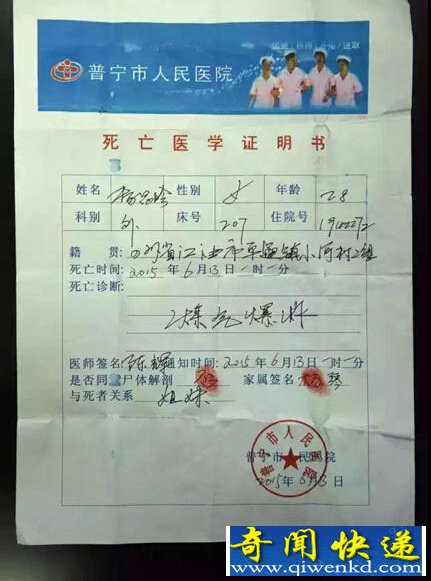 普宁市人民医院
死亡医学证明书
姓名 性别 女 年龄 28
科别 外 床号 207 住院号
籍贯: 四川省江油市 镇小河村2组
死亡时间: 2015年6月13日一时一分
死亡诊断:
煤气爆炸
医师签名: 陈辉 通知时间: 2015年6月13日一时一分
是否同 尸体解剖 家属签名
与死者关系 姐妹
普宁市人民医院
普宁市 民医院
2015年6月13日
奇闻快递
www.qiwenkd.com